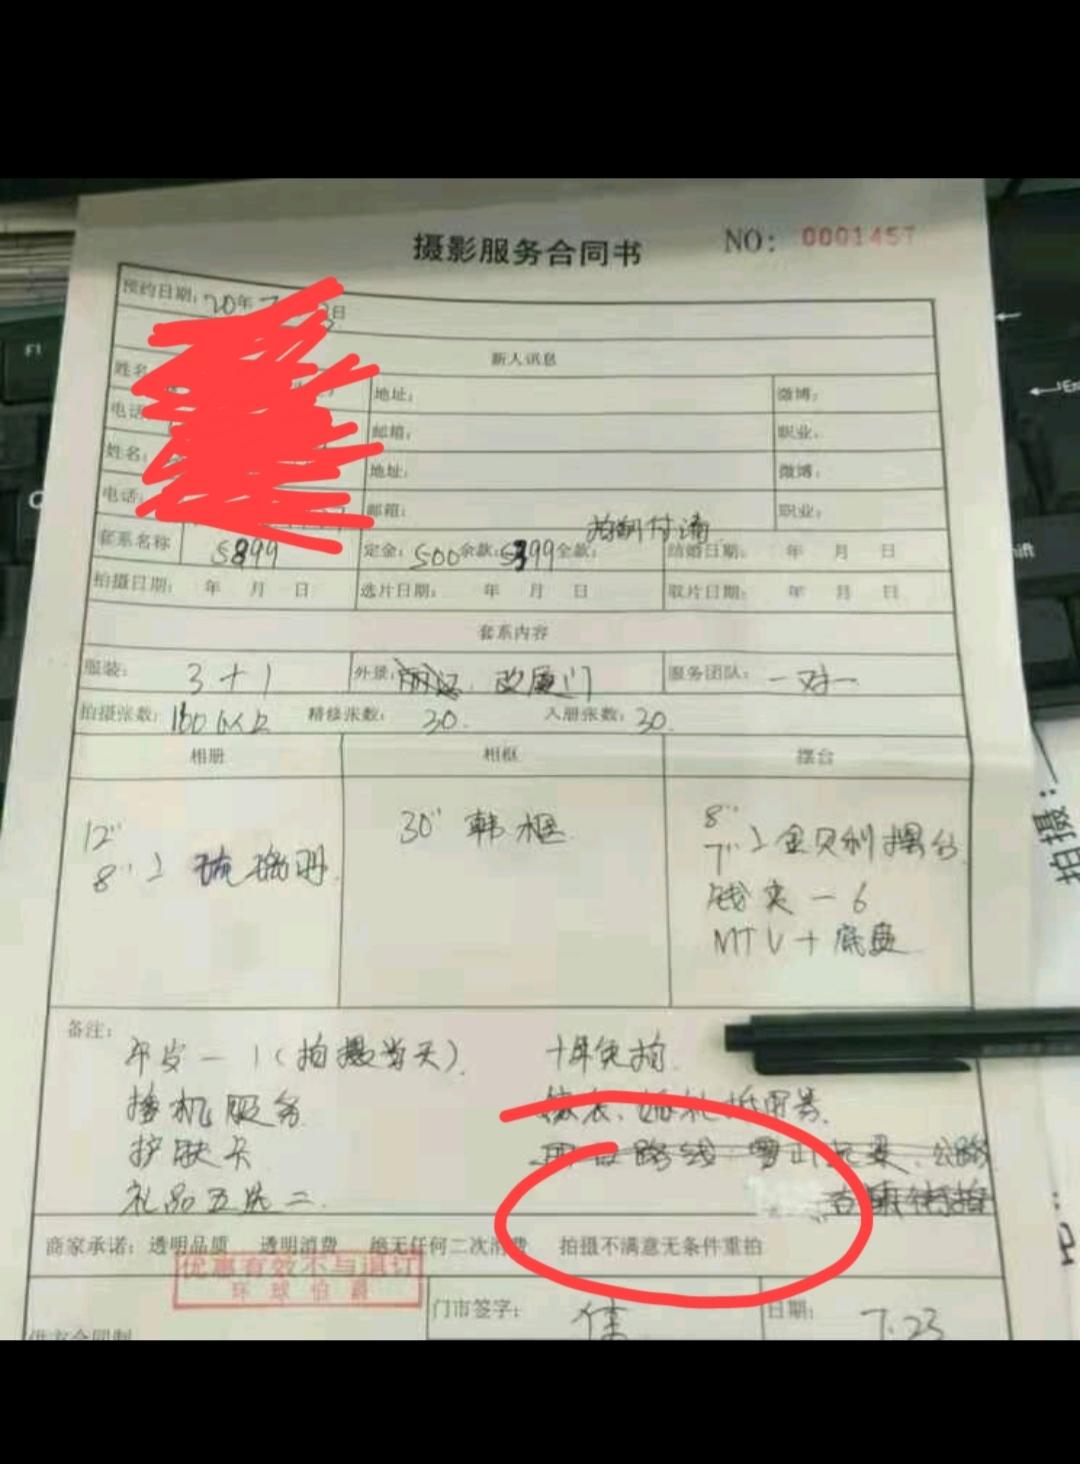 摄影服务合同书 NO: 0001457
预约日期: 20年 日
新人讯息
姓名 地址: 微博:
电话 邮箱: 职业:
姓名: 地址: 微博:
电话: 邮箱: 职业:
拍前付清
套系名称 5899 定金: 500 余款: 5399 全款: 结婚日期: 年 月 日
拍摄日期: 年 月 日 选片日期: 年 月 日 取片日期: 年 月 日
套系内容
服装: 3+1 外景: 丽江 改厦门 服务团队: 一对一
拍摄张数: 100以上 精修张数: 30. 入册张数: 30.
相册 相框 摆台
12" 30" 韩框 8"
8" 琉璃册 7" 金贝利摆台
钱夹-6
MTV+底盘
备注: 年岁-1(拍摄当天). 十年免拍.
接机服务 婚礼抵用券.
护肤卡 路线: 雪山 公路
礼品五选二. 古镇街拍
商家承诺: 透明品质 透明消费 绝无任何二次消费 拍摄不满意无条件重拍
优惠有效不与退订
环球伯爵
门市签字: 日期: 7.23
拍摄:
F1
Shift